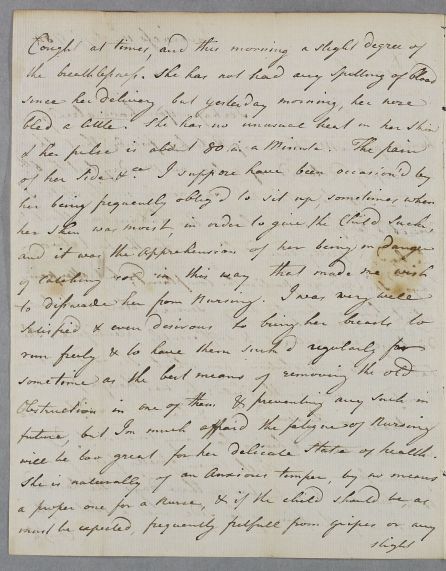 Cough at times, and this morning a slight degree of
the breathlessness. She has not had any spitting of blood
since her delivery but yesterday morning, her nose
bled a little. She has no unusual heat in her skin
& her pulse is abt 80 in a Minute. The pain
of her Side &ca I suppose have been occasion'd by
her being frequently oblig'd to sit up, sometimes when
her skin was moist, in order to give the Child Suck,
and it was the apprehension of her being in danger
of catching cold in this way that made me wish
to disswade her from Nursing. I was very well
Satisfied & even desirous to bring her breasts to
run freely & to have them suck'd regularly for
sometime as the best means of removing the old
Obstruction in one of them & preventing any such in
future, but I'm much affraid the fatigue of Nursing
will be too great for her delicate State of health.
She is naturally of an Anxious temper, by no means
a proper one for a Nurse, & if the child should be, as
must be expected, frequently fretfull from gripes or any
slight